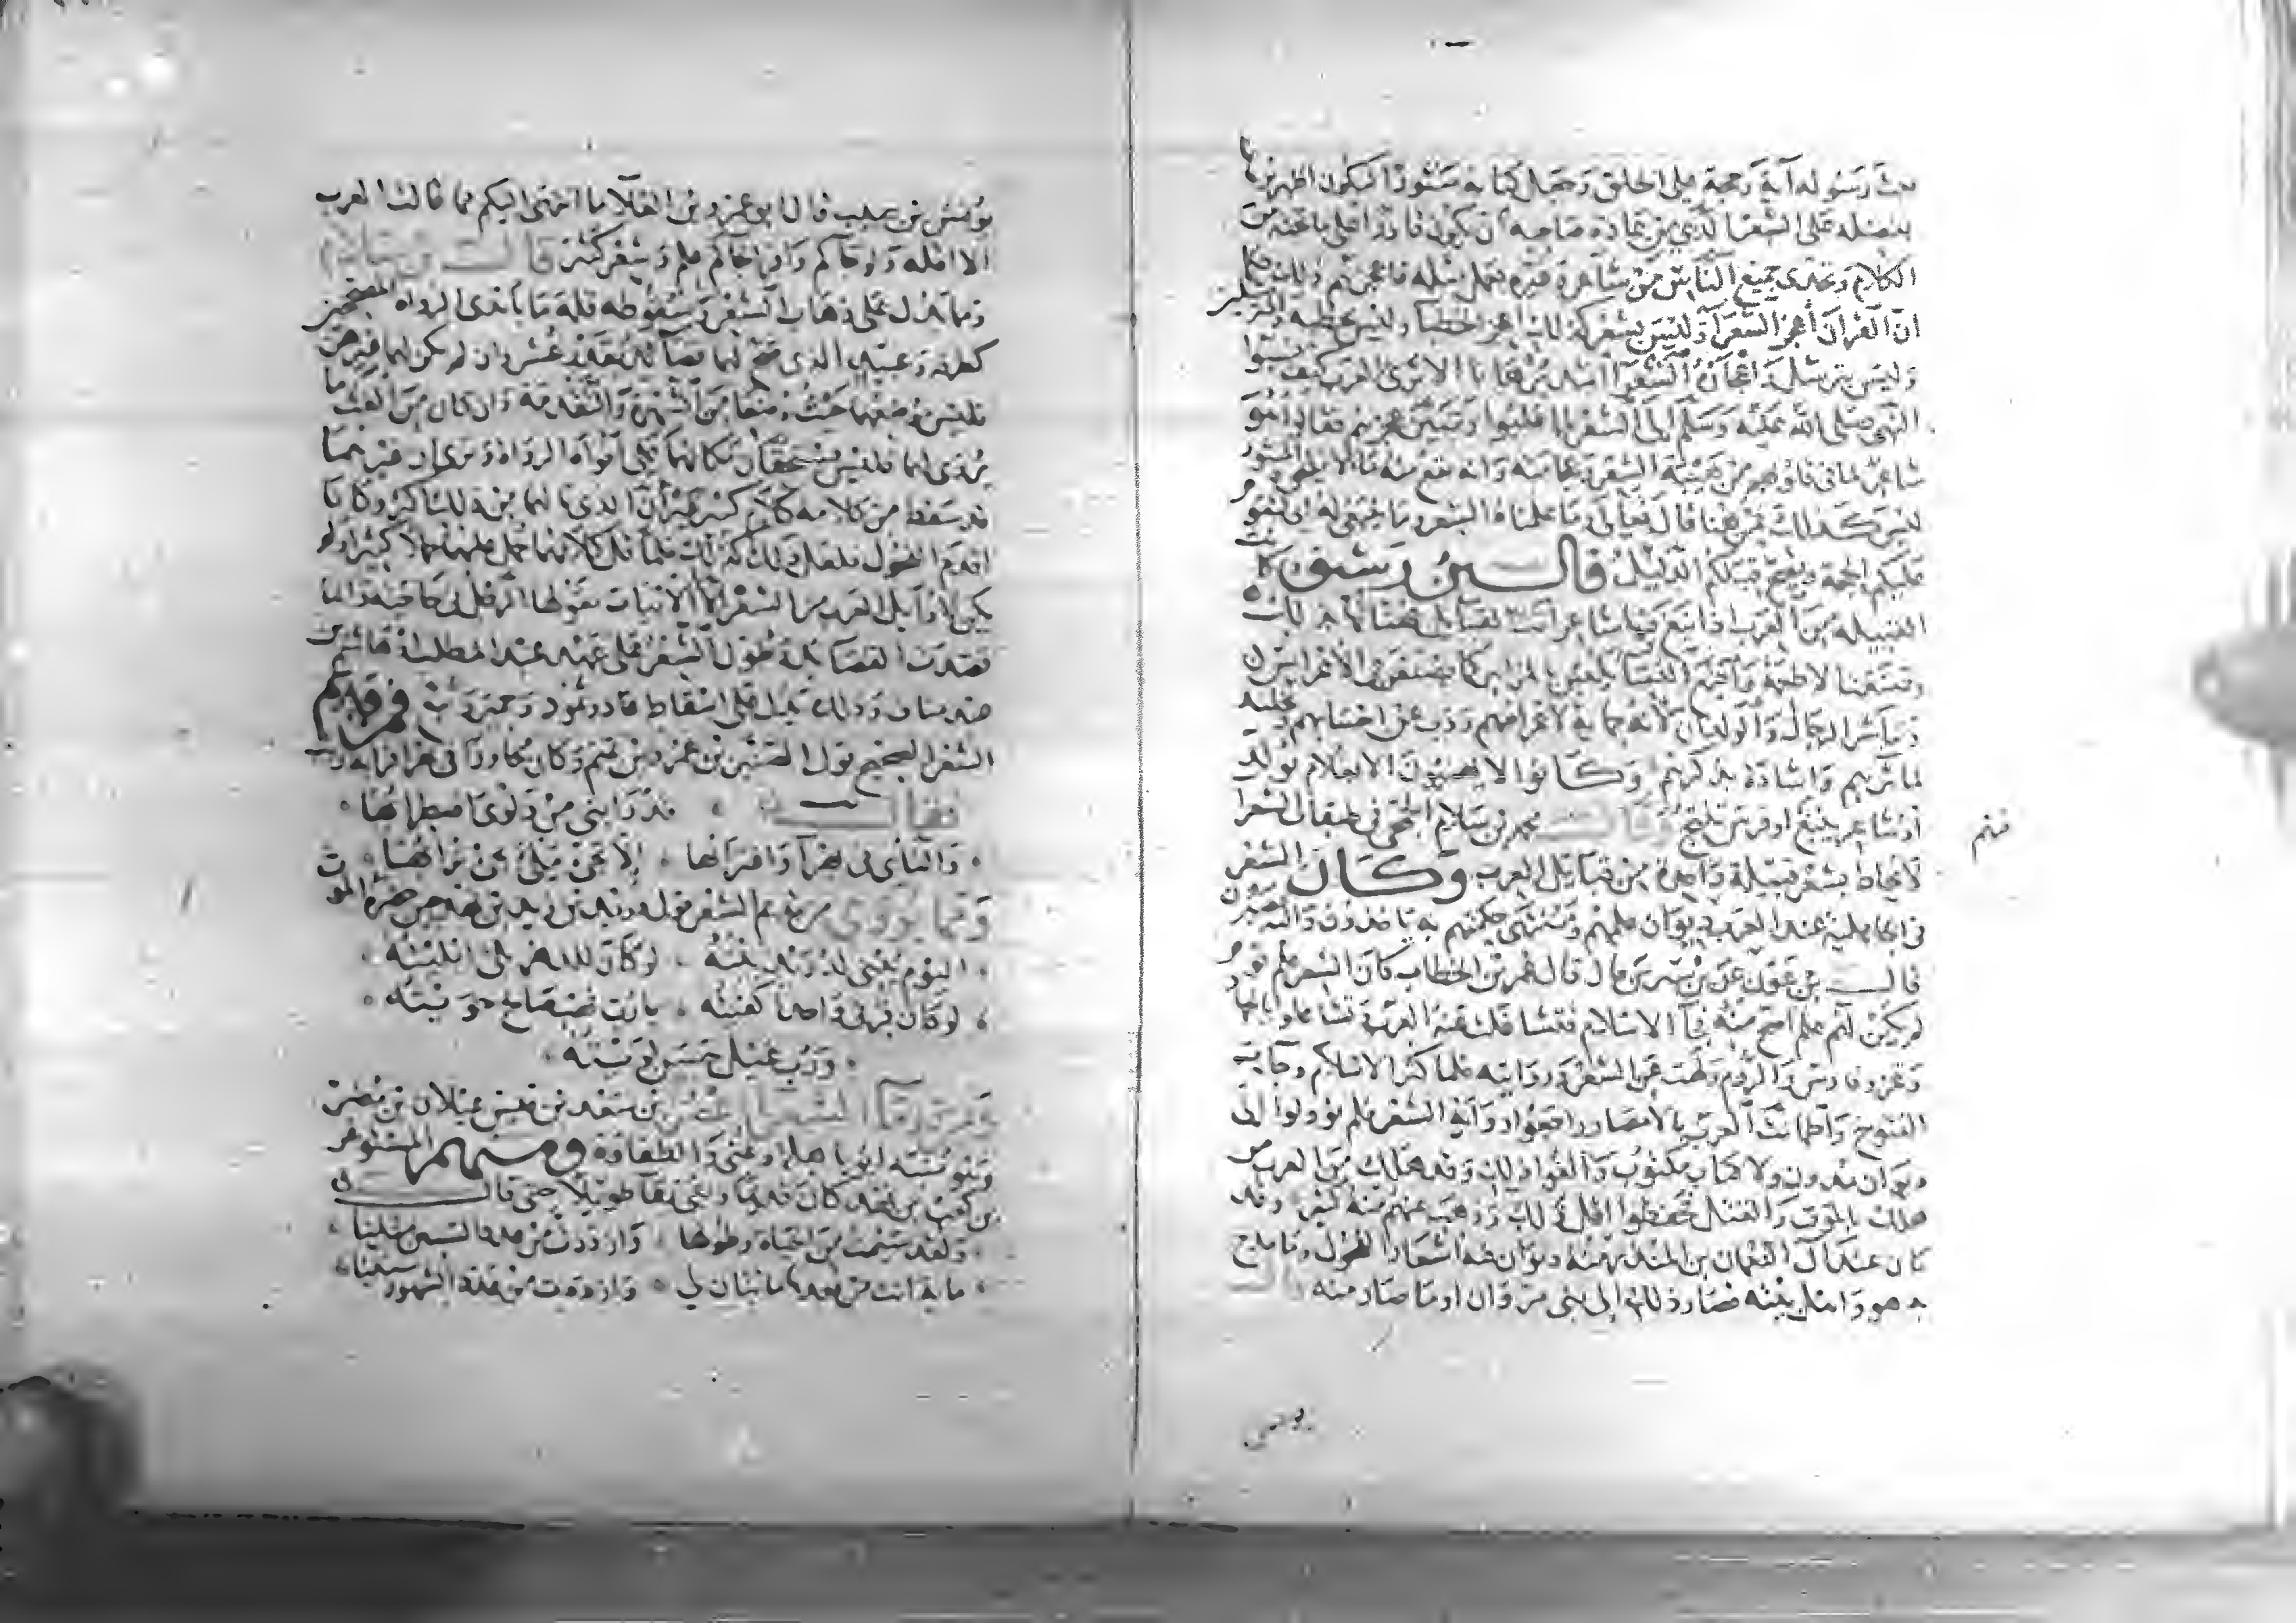 بعث رسوله آية وحجة على الخلق وجعل كتابه منثورا ليكون اظهر برهانا
بفضله على الشعر الذي من عادة صاحبه ان يكون قادرا على ما يحبه من
الكلام وتحدى جميع الناس من شاعر وغيره بعمل مثله فاعجزهم ذلك فكما
ان القران أعجز الشعرا وليس بشعر كذلك اعجز الخطبا وليس بخطبه والمترسلين
وليس بترسل واعجازه الشعرا اشد برهانا الا ترى العرب كيف نسبوا
النبي صلى الله عليه وسلم الى الشعر لما غلبوا وتبين عجزهم فقالوا هو
شاعر لما في قلوبهم من هيبة الشعر وفخامته وانه يقع منه ما لا يلحق والمنثور
ليس كذلك فمن هنا قال تعالى وما علمناه الشعر وما ينبغي له اي لتقوم
عليكم الحجة ويصح قبلكم الدليل قال بن رشيق كانت
القبيله من العرب اذا نبغ فيها شاعر اتت القبايل فهناتها بذلك
وصنعت الاطعمة واجتمع النسا يلعبن بالمزاهر كما يصنعن في الاعراس
وتباشر الرجال والولدان لانه حماية لاعراضهم وذب عن احسابهم وتخليد
لماثرهم واشادة بذكرهم وكانوا لا يهنون الا بغلام يولد
او شاعر ينبغ او فرس تنتج وقال محمد بن سلام الجمحي في طبقات الشعرا
لا يحاط بشعر قبيلة واحدة من قبايل العرب وكان الشعر
في الجاهلية عند العرب ديوان علمهم ومنتهى حكمتهم به ياخذون واليه يصيرون
قال بن عون عن بن سيرين قال قال عمر بن الخطاب كان الشعر علم قوم
لم يكن لهم علم اصح منه فجآ الاسلام فتشاغلت عنه العرب وتشاغلوا بالجهاد
وغزو فارس والروم ولهت عن الشعر وروايته فلما كثر الاسلام وجآت
الفتوح واطمانت العرب بالامصار راجعوا رواية الشعر فلم يؤولوا الى
ديوان مدون ولا كتاب مكتوب والفوا ذلك وقد هلك من العرب من
هلك بالموت والقتل فحفظوا اقل ذلك وذهب عنهم منه كثير وقد
كان عند آل النعمان بن المنذر منه ديوان فيه اشعار الفحول وما مدح
به هو واهل بيته فصار ذلك الى بني مروان او ما صار منه قال
فنم
يونس
يونس بن حبيب قال ابو عمرو بن العلآ ما انتهى اليكم مما قالت العرب
الا اقله ولو جآكم وافرا لجآكم علم وشعر كثير قال بن سلام
ومما يدل على ذهاب الشعر وسقوطه قلة ما بايدي الرواه المصححين
لطرفة وعبيد الذي صح لهما قصآئد بقدر عشر وان لم يكن لهما غيرهن
فليس موضعهما حيث وضعا من الشهرة والتقدمة وان كان من الغث ما
يروى لهما فليس يستحقان مكانهما على افواه الرواة ونرى ان غيرهما
قد سقط من كلامه كلام كثير غير ان الذي نالهما من ذلك اكثر وكانا
اقدم الفحول فلعل ذلك كذلك فلما قل كلامهما حمل عليهما حملا كثيرا ولم
يكن لاوآيل العرب من الشعر الا الابيات يقولها الرجل في حاجته وانما
قصدت القصايد وطول الشعر على عهد عبد المطلب او هاشم بن
عبد مناف وذلك يدل على اسقاط عاد وثمود وحمير وتبع فمن قديم
الشعر الصحيح قول العنبر بن عمرو بن تميم وكان مجاورا في بهرا فرابه ريب
فقال قد رابني من دلوي اضطرابها
والناي في بهرآ واغترابها الا تجئ ملئ يجئ قرابها
ومما يروى من قديم الشعر قول دويد بن زيد بن نهد حين حضره الموت
اليوم يبنى لدويد بيته لو كان للدهر بلى ابليته
لو كان قرني واحدا كفيته يا رب نهب صالح حويته
ورب غيل حسن لويته
ومن قدمآ الشعرآ اعصر بن سعد بن قيس عيلان بن مضر
وهو منبه ابو باهلة وغنى والطفاوة ومنهم المستوغر
بن كعب بن سعد كان قديما وبقى بقآ طويلا حتى قال
ولقد سئمت من الحياة وطولها وازددت من عدد السنين مئينا
ماية اتت من بعدها مائتان لي وازددت من عدد الشهور سنينا